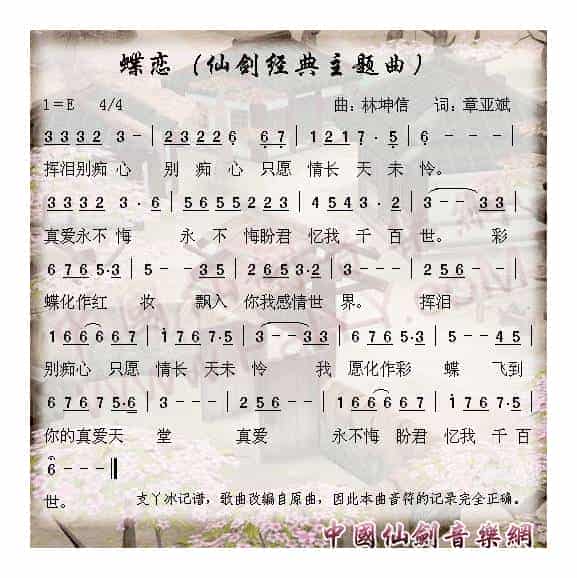 蝶恋（仙剑经典主题曲）
1=E 4/4 曲:林坤信 词:章亚斌
3332 3- | 2322 6 67 | 1217·5 | 6---
挥泪别痴心 别痴心只愿情长天未怜。
3332 3·6 | 5655 2223 | 4543·2 | 3--33
真爱永不悔 永不悔盼君忆我千百世。彩
6765·3 | 5--35 | 2653·3 | 3--33
蝶化作红妆 飘入你我感情世界。挥泪
166667 | 1767·5 | 3--33 | 6765·3 | 5--45
别痴心只愿情长天未怜 我愿化作彩蝶飞到
6767 5·6 | 3--- | 256-- | 166667 | 1767·5 |
你的真爱天堂 真爱 永不悔盼君忆我千百
6---
世。 支丫冰记谱，歌曲改编自原曲，因此本曲音符的记录完全正确。
中國仙劍音樂網